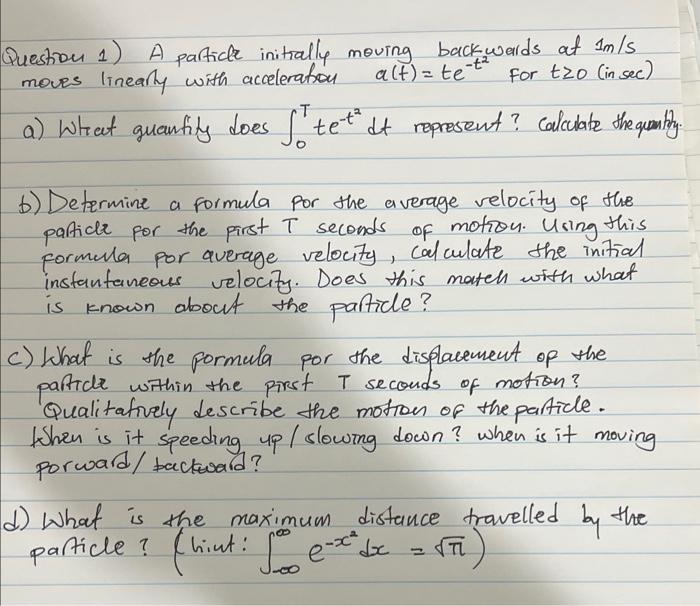 Question 1) A particle initially moving backwards at 1m/s
moves linearly with acceleration a(t) = te^{-t^2} for t≥0 (in sec)
a) What quantity does ∫_0^T te^{-t^2} dt represent? Calculate the quantity.
b) Determine a formula for the average velocity of the
particle for the first T seconds of motion. Using this
formula for average velocity, calculate the initial
instantaneous velocity. Does this match with what
is known about the particle?
c) What is the formula for the displacement of the
particle within the first T seconds of motion?
Qualitatively describe the motion of the particle.
When is it speeding up / slowing down? when is it moving
forward/ backward?
d) What is the maximum distance travelled by the
particle? (hint: ∫_{-∞}^{∞} e^{-x^2} dx = √π)